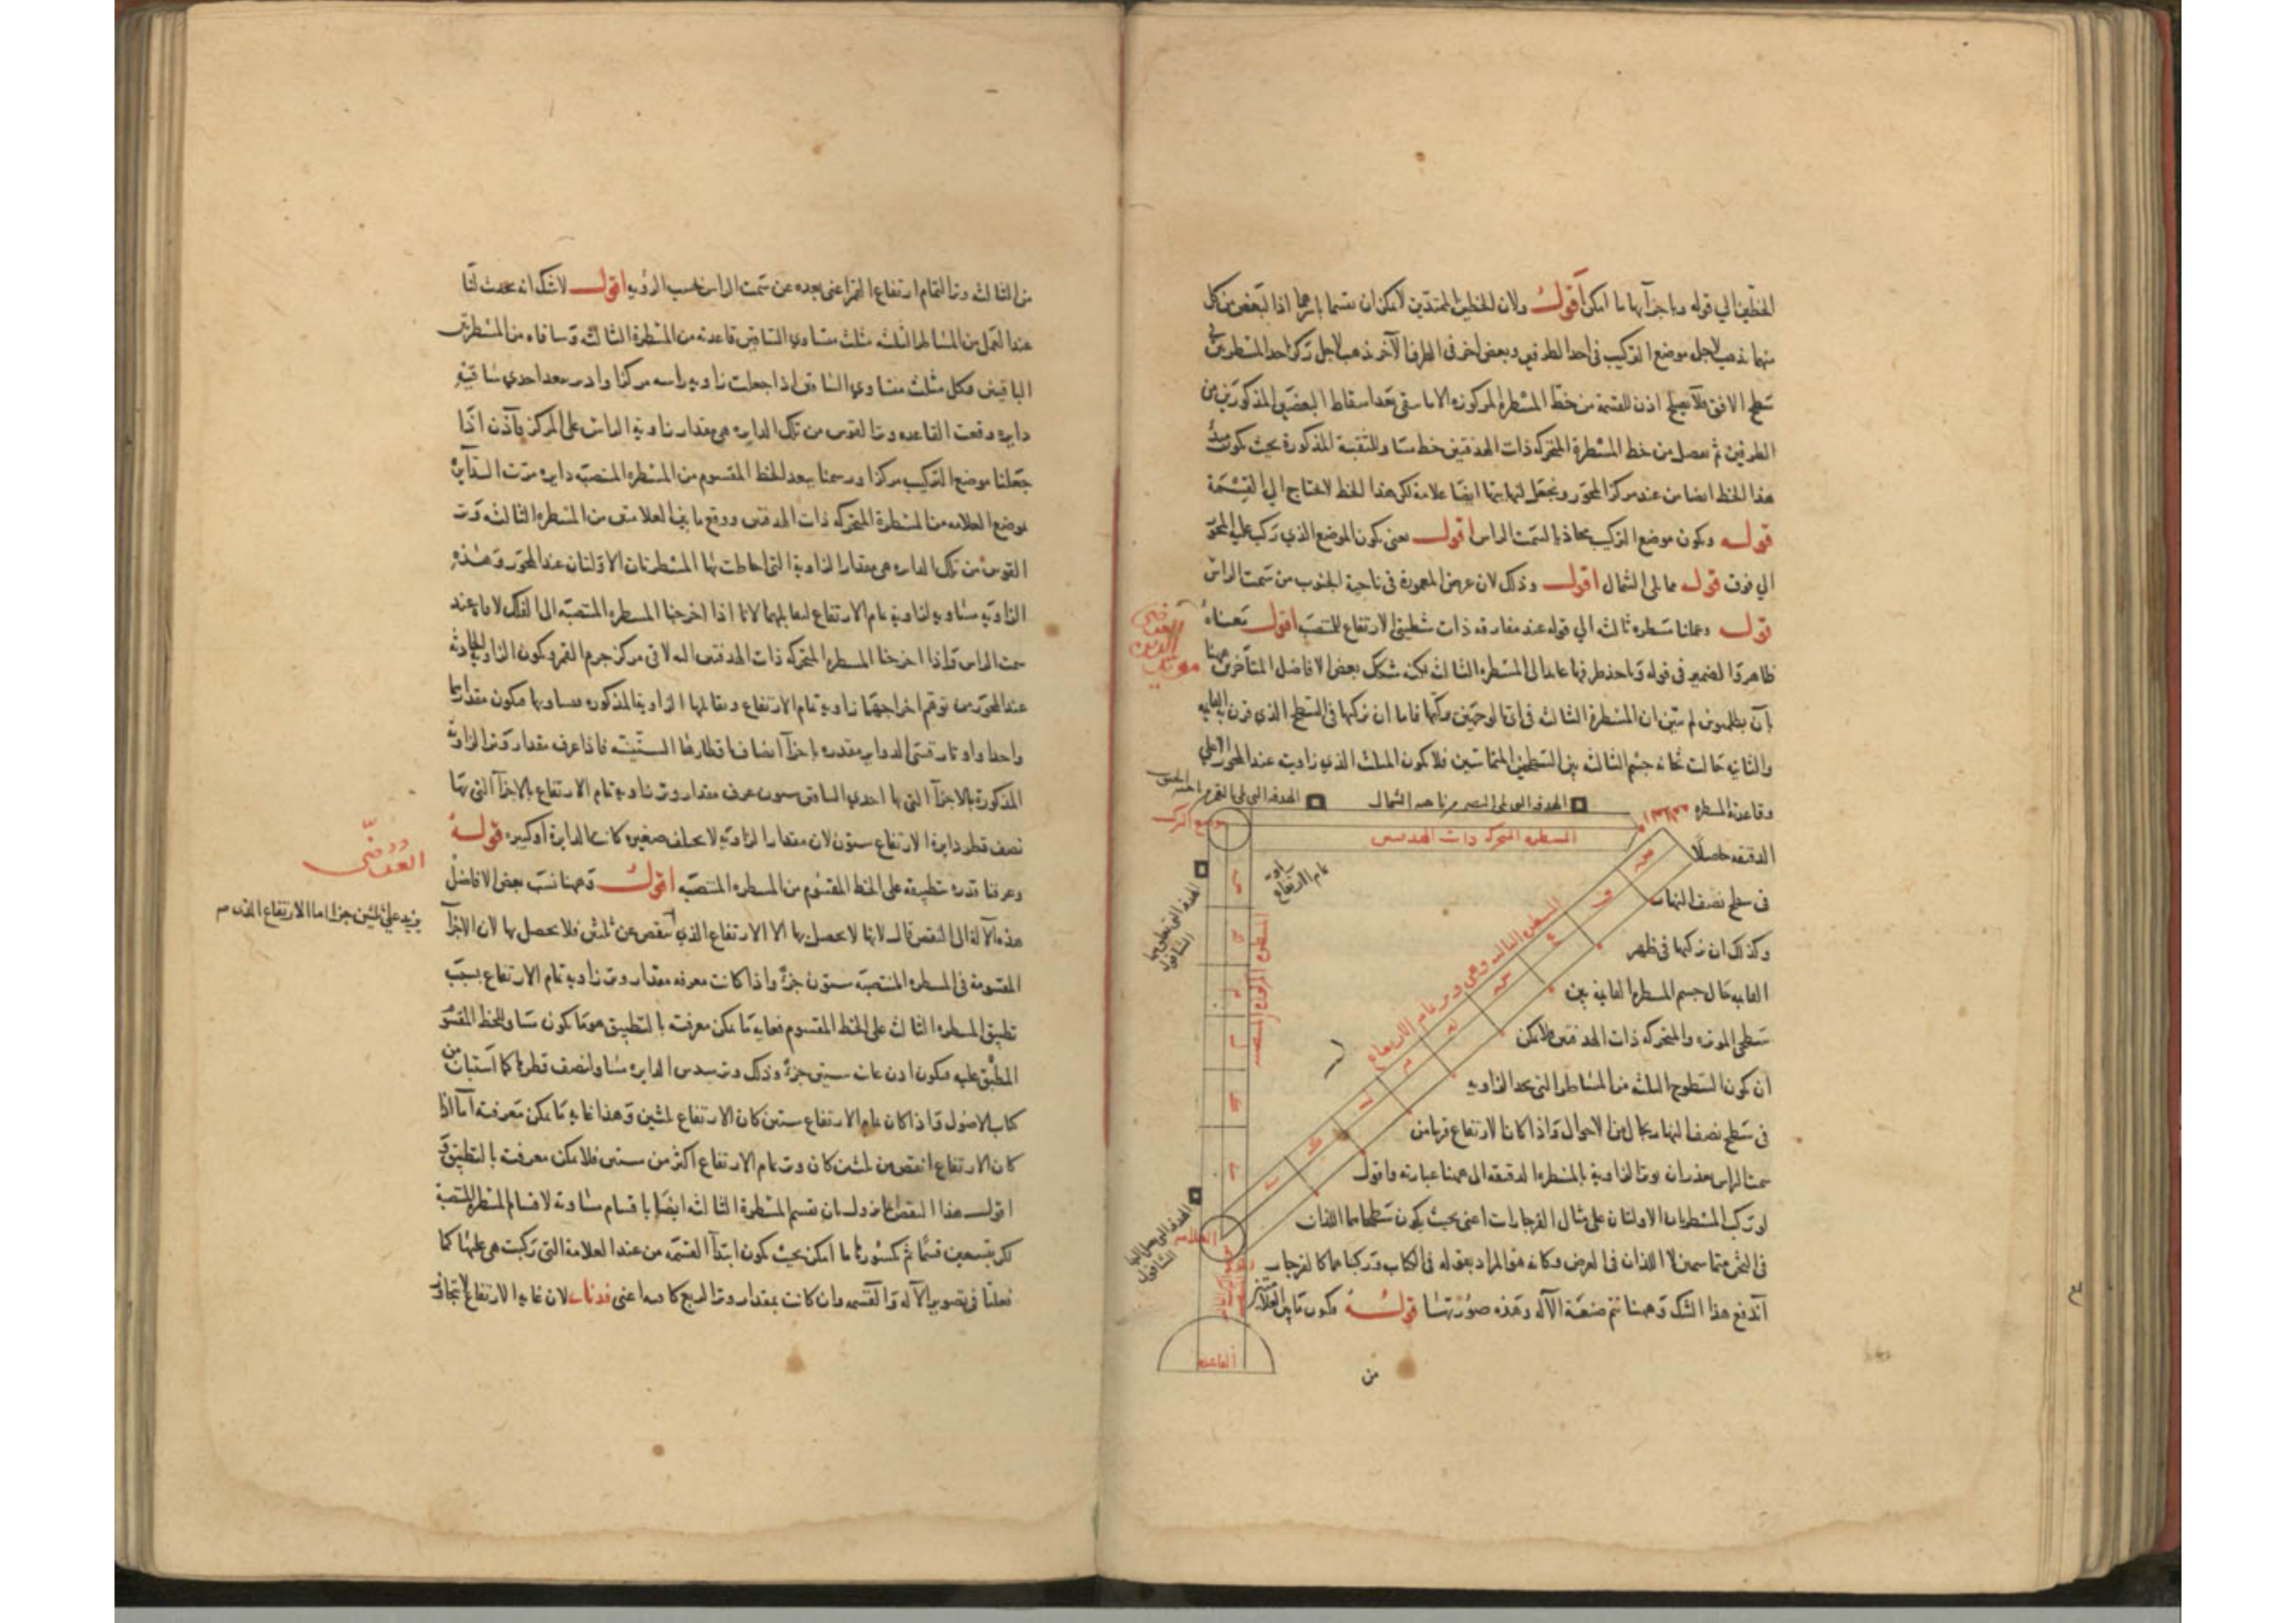 الخطين الي قوله وباجزآيها ما امكن اقول ولان الخطين الممتدين لا يمكن ان يقسما باسرهما اذا لبعض من كل
منهما يذهب لاجل موضع التركيب في احد الطرفين وبعض اخر في الطرف الآخر يذهب لاجل تركز احد المسطرتين في
سطح الافق فلا يصلح اذن للقسمة من خط المسطرة المركوزه الا ما يبقى بعد اسقاط البعضين المذكورين من
الطرفين ثم نفصل من خط المسطرة المتحركه ذات الهدفتين خط مساو للمتقسمة المذكورة بحيث يكون مبدأ
هذا الخط ايضا من عند مركز المحور ونجعل لنهايتها ايضا علامة لكن هذا الخط لا يحتاج الي القسمة
قوله ويكون موضع التركيب محاذيا لسمت الراس اقول يعني يكون الموضع الذي تركب عليه المحور
الي فوق قوله مما يلي الشمال اقول وذلك لان عرض المعمورة في ناحية الجنوب من سمت الراس
قوله وعملنا مسطره ثالثه الي قوله عند مفارقه ذات شطيتي الارتفاع للمنتصبه اقول معناه
ظاهر والضمير في قوله وياخذ طرفها عايد الى المسطره الثالث لكنه شكك بعض الافاضل المتأخرين ههنا
بأن بطلميوس لم يبين ان المسطرة الثالثه في اي لوحتين ركبها فاما ان يركبها في السطح الذي
والثانيه حالت ثخانه جسم الثالثه بين السطحين المتماسين فلا يكون المثلث الذي زاويته عند المحور الاعلي
وقاعدته المسطره
الدقيقه حاصلا
في سطح نصف النهار
وكذلك ان يركبها في ظهر
الثانيه حال جسم المسطرة الثانية بين
سطحي المركوزه والمتحركه ذات الهدفتين فلا يمكن
ان يكون السطوح الثلثه من المساطر التي تحد الزاويه
في سطح نصف النهار بحال من الاحوال واذا كان الارتفاع قريبا من
سمت الراس تعذر ان يوتر الزاوية بالمسطرة الدقيقه الى ههنا عبارته واقول
لو تركب المسطرتان الاولتان على مثال الفرجارات اعني بحيث يكون سطحاهما اللذان
في الثخن متماسين لا اللذان في العرض وكانه هو المراد بقوله في الكتاب وتركيبهما كالفرجار
اندفع هذا الشك وههنا تم صنعة الآله وهذه صورتها قوله يكون ما بين العلامتين
من
الهدفه التي تلي القمر
الهدفه التي تلي البصر من ناحيه الشمال
موضع التركيب
المسطره المتحركه ذات الهدفتين
زاوية
تمام الارتفاع
المسطره الثالثه وهي وتر تمام الارتفاع
المسطره المركوزه المنتصبه
الهدفه التي تعلق بها
الشاقول
الهدفه التي يصل اليها
الشاقول
العلامه
القاعده
من الثالثه وتر التمام ارتفاع القمر اعني بعده عن سمت الراس بحسب الرؤيه اقول لا شك انه يحدث لنا
عند العمل من المساطر الثلثه مثلث متساوي الساقين قاعدته من المسطرة الثالثه وساقاه من المسطرتين
الباقيتين وكل مثلث متساوي الساقين اذا جعلت زاويه راسه مركزا وادير ببعد احدي ساقيه
دايره وقعت القاعده وترا لقوس من تلك الدايره هي مقدار زاوية الراس على المركز فاذن اذا
جعلنا موضع التركيب مركزا ورسمنا ببعد الخط المقسوم من المسطره المنتصبه دايره مرت الدايرة
بموضع العلامه من المسطرة المتحركه ذات الهدفتين ووقع ما بين العلامتين من المسطره الثالثه وتر
القوس من تلك الدايره هي مقدار الزاوية التي احاطت بها المسطرتان الاولتان عند المحور وهذه
الزاويه مساويه لزاوية تمام الارتفاع لتقابلهما لانا اذا اخرجنا المسطره المنتصبه الى الفلك لاقاه عند
سمت الراس واذا اخرجنا المسطرة المتحركه ذات الهدفتين اليه لاقى مركز جرم القمر ويكون الزاوية الحادثه
عند المحور من توهم اخراجهما زاوية تمام الارتفاع ويقابلها الزاوية المذكوره فيساويها فيكون مقدارهما
واحدا واوتار قسي الدواير مقدره باجزآ انصاف اقطارها الستينيه فاذا عرف مقدار وتر الزاوية
المذكورة بالاجزآ التي بها احدي الساقين ستون عرف مقدار وتر زاويه تمام الارتفاع بالاجزآ التي بها
نصف قطر دايرة الارتفاع ستون لان مقدار الزاويه لا يختلف صغيره كانت الدايرة او كبيره قوله
وعرفنا قدره بتطبيقه على الخط المقسوم من المسطره المنتصبه اقول وههنا نسب بعض الافاضل
هذه الآلة الى النقص قال لانها لا يحصل بها الا الارتفاع الذي ينقص عن ثلثين فلا يحصل بها لان الاجزآ
المقسومة في المسطره المنتصبه ستون جزءً واذا كانت معرفه مقدار وتر زاوية تمام الارتفاع بسبب
تطبيق المسطره الثالث على الخط المقسوم فغاية ما يمكن معرفته بالتطبيق هو ما يكون مساو للخط المقسوم
المطبق عليه فيكون اذن غايته ستين جزءً وذلك وتر سدس الدايره مساو لنصف قطرها كما استبان من
كتاب الاصول واذا كان تمام الارتفاع ستين كان الارتفاع ثلثين وهذا غايه ما يمكن معرفته اما اذا
كان الارتفاع انقص من ثلثين كان وتر تمام الارتفاع اكثر من ستين فلا يمكن معرفته بالتطبيق
اقول هذا النقص انما يزول بان يقسم المسطرة الثالثه ايضا باقسام مساوية لاقسام المسطرة المنتصبة
لكن بتسعين قسما ثم كسورها ما امكن بحيث يكون ابتدآ القسمة من عند العلامة التي تركبت هي عليها كما
فعلنا في تصوير الآله والقسمه وان كانت بمقدار وتر الربع كافيه اعني لان غايه الارتفاع لا يتجاوز
يزيد علي ثلثين جزءا اما الارتفاع الذي